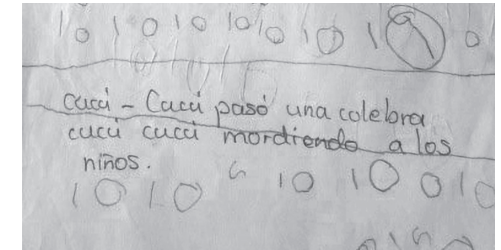 10 10 10 10 10 10 1 9 0
cucú - Cucú pasó una colebra
cucú cucú mordiendo a los
niños.
10 10 6 10 10 010